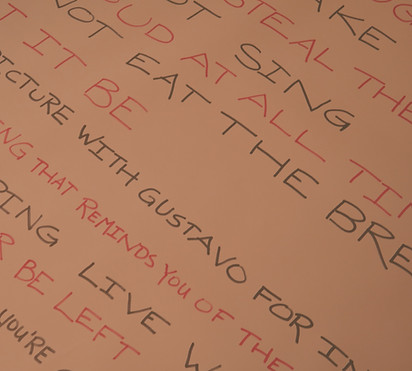 AKE
STEAL THE
OT SING
OUD AT ALL TI
NOT EAT THE BRE
T IT BE
ICTURE WITH GUSTAVO FOR IN
NG THAT REMINDS YOU OF THE
PING LIVE W
R BE LEFT
YOU'RE